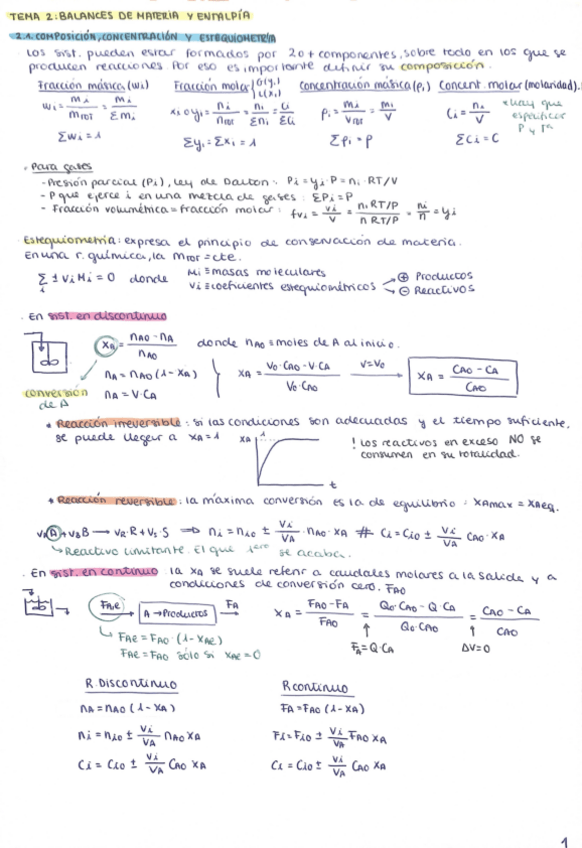 TEMA 2: BALANCES DE MATERIA Y ENTALPÍA
2.1. COMPOSICIÓN, CONCENTRACIÓN Y ESTEQUIOMETRÍA
Los sist. pueden estar formados por 2 o + componentes, sobre todo en los que se
producen reacciones. Por eso es importante definir su composición.
Fracción másica (wi) Fracción molar G(yi) L(xi) Concentración másica (ρi) Concent. molar (molaridad).
wi = mi/mTOT = mi/Σmi xi o yi = ni/nTOT = ni/Σni = ci/Σci ρi = mi/VTOT = mi/V Ci = ni/V *hay que especificar P y Tª
Σwi = 1 Σyi = Σxi = 1 Σρi = ρ ΣCi = C
· Para gases
- Presión parcial (Pi), Ley de Dalton: Pi = yi·P = ni·RT/V
- P que ejerce i en una mezcla de gases: ΣPi = P
- Fracción volumétrica = fracción molar: fvi = vi/V = ni RT/P / n RT/P = ni/n = yi
Estequiometría: expresa el principio de conservación de materia.
En una r. química, la mTOT = cte.
Σi ± νi Mi = 0 donde Mi ≡ masas moleculares
νi ≡ coeficientes estequiométricos → ⊕ Productos
→ ⊖ Reactivos
· En sist. en discontinuo
XA = nA0 - nA / nA0 donde nA0 = moles de A al inicio.
nA = nA0 (1 - XA)
nA = V·CA
XA = V0·CA0 - V·CA / V0·CA0 V=V0 → XA = CA0 - CA / CA0
conversión de A
* Reacción irreversible: si las condiciones son adecuadas y el tiempo suficiente,
se puede llegar a XA = 1 XA 1 t
! Los reactivos en exceso NO se
consumen en su totalidad.
* Reacción reversible: la máxima conversión es la de equilibrio: XAmax = XAeq.
νA A + νB B → νR·R + νS·S ⇒ ni = ni0 ± νi/νA · nA0·XA # Ci = Ci0 ± νi/νA CA0·XA
↳ Reactivo limitante. El que 1ero se acaba.
· En sist. en continuo la XA se suele referir a caudales molares a la salida y a
condiciones de conversión cero. FA0
FAe → A → Productos → FA
XA = FA0 - FA / FA0 = Q0·CA0 - Q·CA / Q0·CA0 = CA0 - CA / CA0
↳ FAe = FA0·(1 - XAe)
FAe = FA0 sólo si XAe = 0
FA = Q·CA ΔV=0
R. Discontinuo R continuo
nA = nA0 (1 - XA) FA = FA0 (1 - XA)
ni = ni0 ± νi/νA nA0 XA Fi = Fi0 ± νi/νA FA0 XA
Ci = Ci0 ± νi/νA CA0 XA Ci = Ci0 ± νi/νA CA0 XA
1